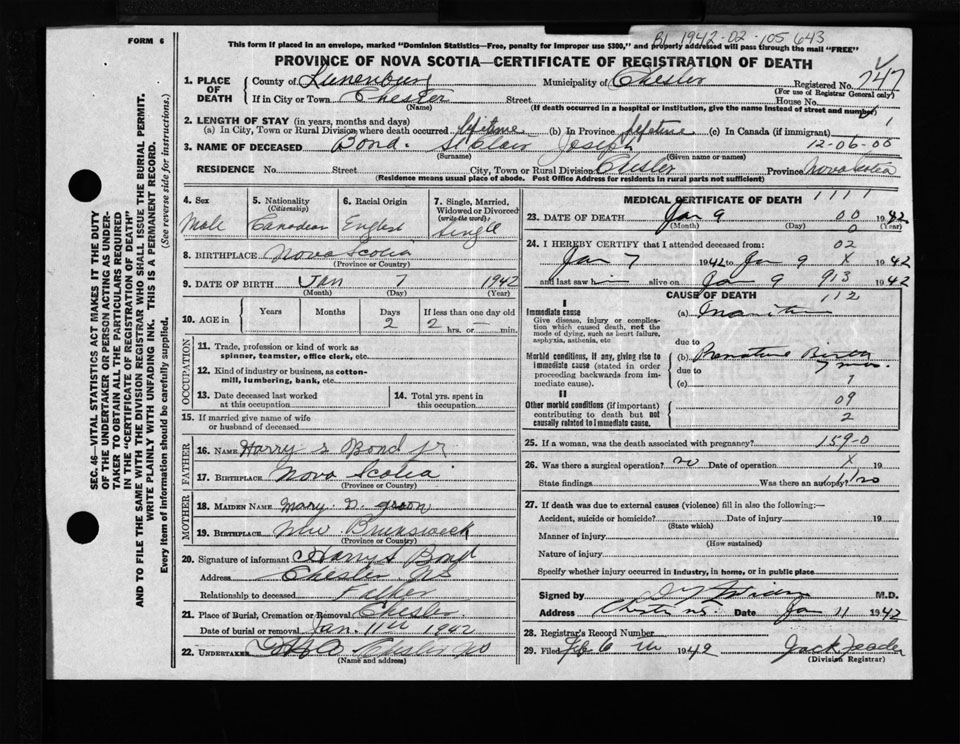 FORM 6
BL 1942-02-105643
This form if placed in an envelope, marked "Dominion Statistics—Free, penalty for improper use $300," and properly addressed will pass through the mail "FREE"
PROVINCE OF NOVA SCOTIA—CERTIFICATE OF REGISTRATION OF DEATH
1. PLACE OF DEATH County of Lunenburg Municipality of Chester Registered No. 747
(For use of Registrar General only)
If in City or Town Chester Street House No.
(Name) (If death occurred in a hospital or institution, give the name instead of street and number)
2. LENGTH OF STAY (in years, months and days) 1
(a) In City, Town or Rural Division where death occurred lifetime (b) In Province lifetime (c) In Canada (if immigrant)
3. NAME OF DECEASED Bond. St Clair Joseph 12-06-00
(Surname) (Given name or names)
RESIDENCE No. Street City, Town or Rural Division Chester Province Nova Scotia
(Residence means usual place of abode. Post Office Address for residents in rural parts not sufficient)
4. Sex 5. Nationality 6. Racial Origin 7. Single, Married, Widowed or Divorced
(Citizenship) (write the word)
Male Canadian English Single
8. BIRTHPLACE Nova Scotia
(Province or Country)
9. DATE OF BIRTH Jan 7 1942
(Month) (Day) (Year)
10. AGE in Years Months Days If less than one day old
2 2 hrs. or — min.
OCCUPATION
11. Trade, profession or kind of work as spinner, teamster, office clerk, etc.
12. Kind of industry or business, as cotton-mill, lumbering, bank, etc.
13. Date deceased last worked at this occupation 14. Total yrs. spent in this occupation
15. If married give name of wife or husband of deceased
FATHER
16. NAME Harry S Bond Jr
17. BIRTHPLACE Nova Scotia
MOTHER
18. MAIDEN NAME Mary D.
19. BIRTHPLACE New Brunswick
(Province or Country)
20. Signature of informant Harry S Bond
Address Chester NS
Relationship to deceased Father
21. Place of Burial, Cremation or Removal Chester
Date of burial or removal Jan. 11th 1942
22. UNDERTAKER Chester NS
(Name and address)
MEDICAL CERTIFICATE OF DEATH 1111
23. DATE OF DEATH Jan 9 00 1942
(Month) (Day) 0 (Year)
24. I HEREBY CERTIFY that I attended deceased from: 02
Jan 7 1942 to Jan 9 X 1942
and last saw him alive on Jan 9 913 1942
CAUSE OF DEATH 112
I
Immediate cause (a) Inanition
Give disease, injury or complication which caused death, not the mode of dying, such as heart failure, asphyxia, asthenia, etc
due to
Morbid conditions, if any, giving rise to immediate cause (stated in order proceeding backwards from immediate cause). (b) Premature Birth
7 mos.
due to
(c) 9
II 09
Other morbid conditions (if important) contributing to death but not causally related to immediate cause. 2
25. If a woman, was the death associated with pregnancy? 159-0
26. Was there a surgical operation? no Date of operation X 19
State findings Was there an autopsy? no
27. If death was due to external causes (violence) fill in also the following:—
Accident, suicide or homicide? Date of injury 19
(State which)
Manner of injury
(How sustained)
Nature of injury
Specify whether injury occurred in industry, in home, or in public place
Signed by M.D.
Address Chester NS Date Jan 11 1942
28. Registrar's Record Number
29. Filed Feb 6 th 1942 Jack
(Division Registrar)
SEC. 46—VITAL STATISTICS ACT MAKES IT THE DUTY
OF THE UNDERTAKER OR PERSON ACTING AS UNDER-
TAKER TO OBTAIN ALL THE PARTICULARS REQUIRED
IN THE "CERTIFICATE OF REGISTRATION OF DEATH"
AND TO FILE THE SAME WITH THE DIVISION REGISTRAR WHO SHALL ISSUE THE BURIAL PERMIT.
WRITE PLAINLY WITH UNFADING INK. THIS IS A PERMANENT RECORD.
Every item of information should be carefully supplied. (See reverse side for instructions.)